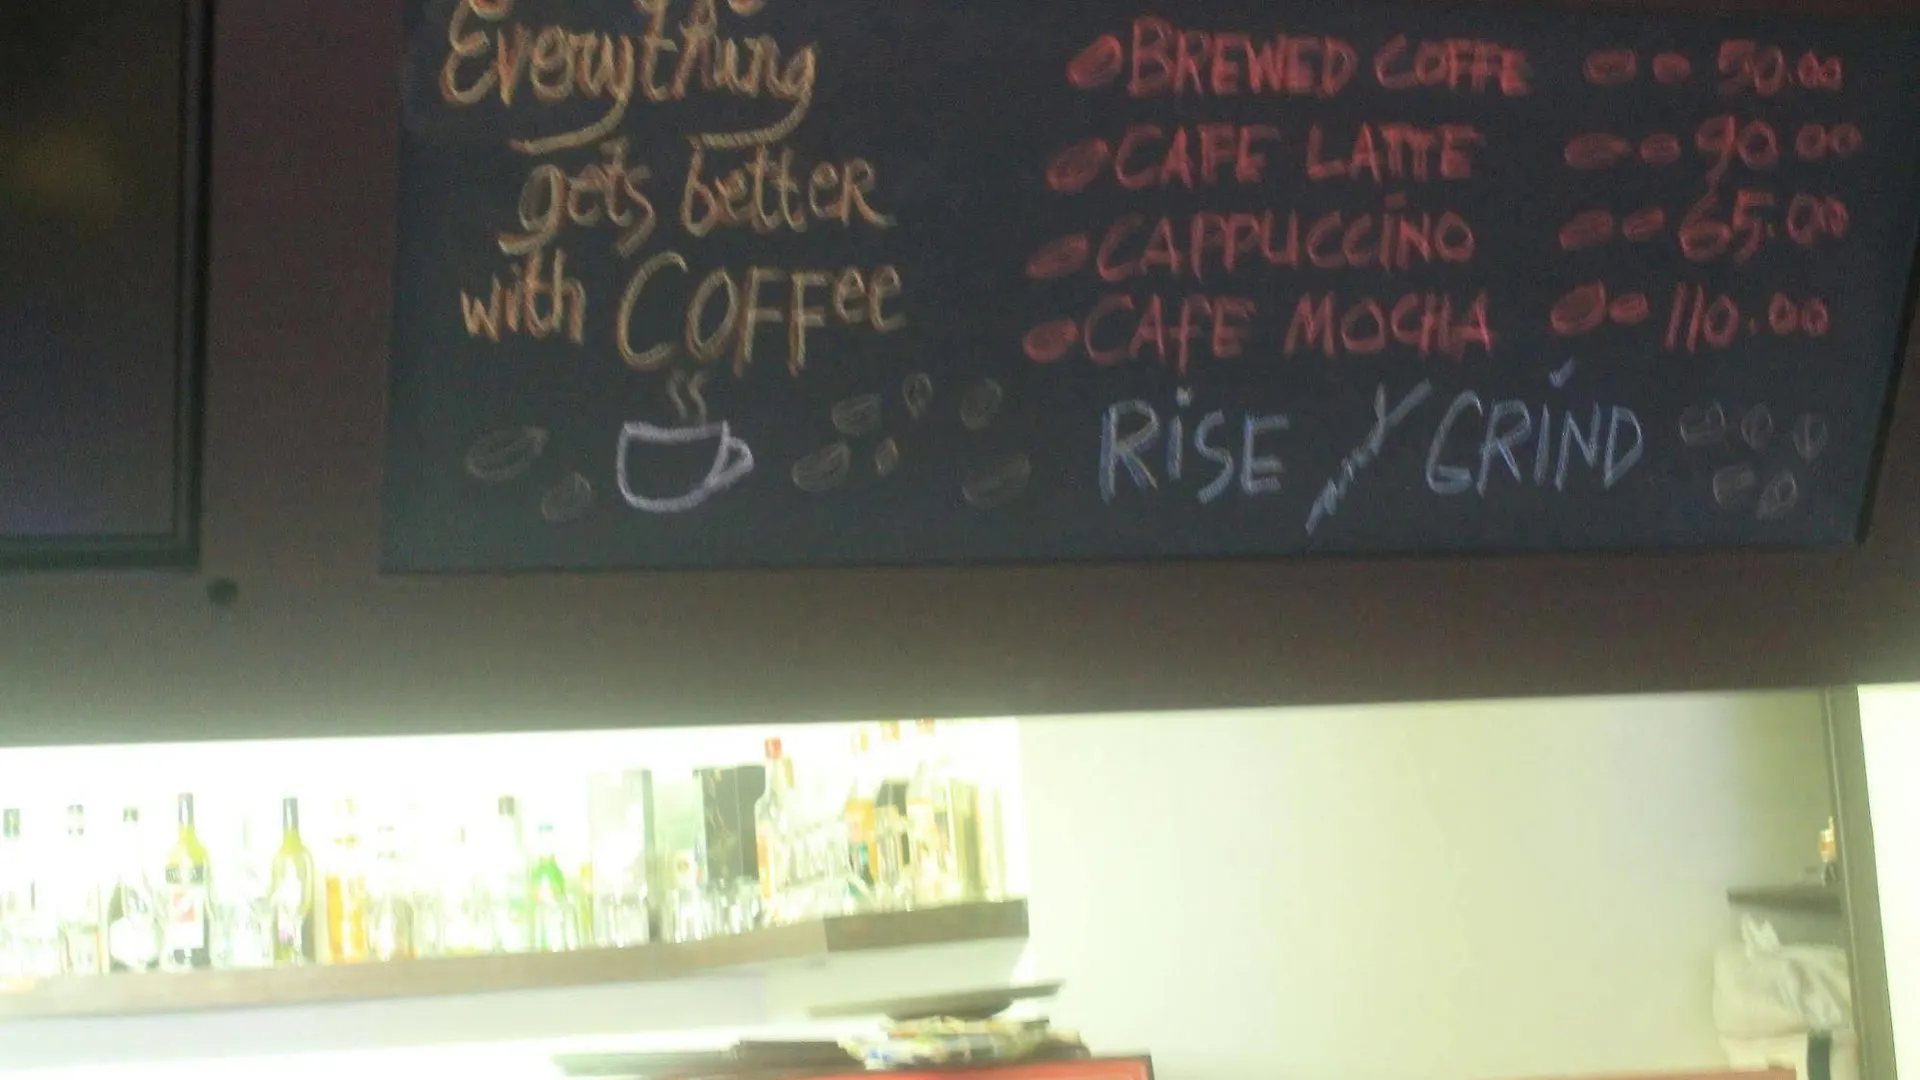 Everything
gets better
with COFFee
BREWED COFFE 50.00
CAFE LATTE 90.00
CAPPUCCINO 65.00
CAFE MOCHA 110.00
RISE Y GRIND